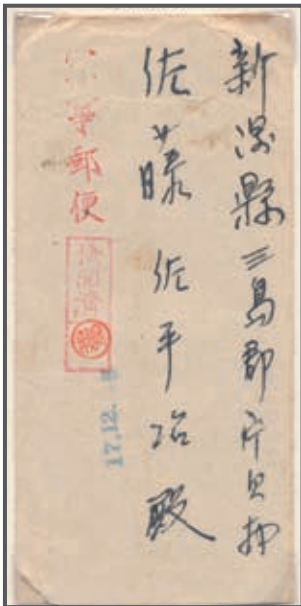 新潟縣三島郡片貝村
佐藤佐平治殿
軍事郵便
検閲濟
17.12.